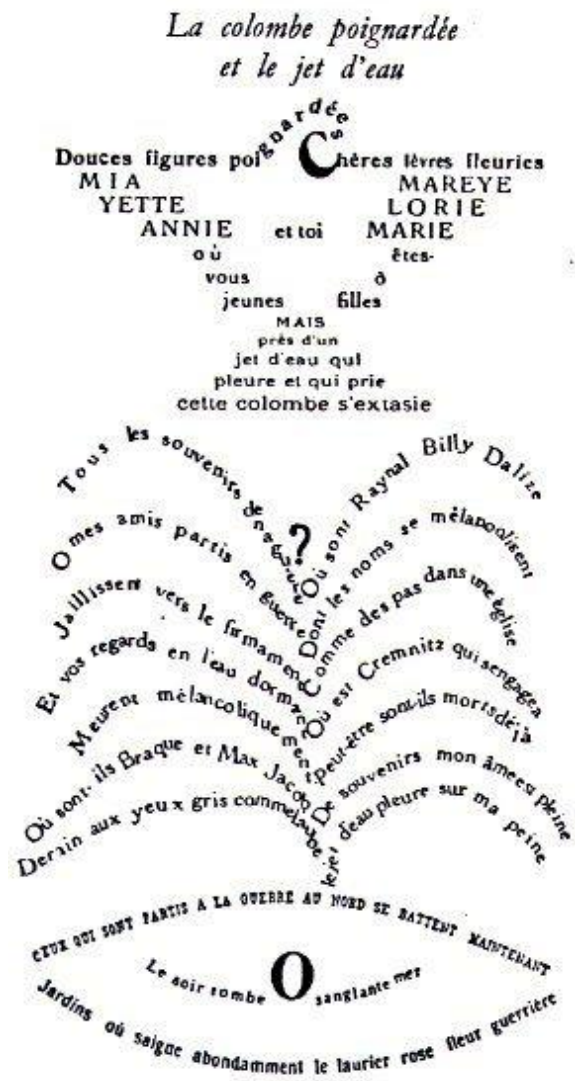 La colombe poignardée
et le jet d'eau
Douces figures poignardées Chères lèvres fleuries
MIA MAREYE
YETTE LORIE
ANNIE et toi MARIE
où êtes-
vous ô
jeunes filles
MAIS
près d'un
jet d'eau qui
pleure et qui prie
cette colombe s'extasie
Tous les souvenirs de naguère
O mes amis partis en guerre
Jaillissent vers le firmament
Et vos regards en l'eau dormant
Meurent mélancoliquement
Où sont-ils Braque et Max Jacob
Derain aux yeux gris comme l'aube
?
Où sont Raynal Billy Dalize
Dont les noms se mélancolisent
Comme des pas dans une église
Où est Cremnitz qui s'engagea
peut-être sont-ils morts déjà
De souvenirs mon âme est pleine
le jet d'eau pleure sur ma peine
CEUX QUI SONT PARTIS A LA GUERRE AU NORD SE BATTENT MAINTENANT
Le soir tombe O sanglante mer
Jardins où saigne abondamment le laurier rose fleur guerrière